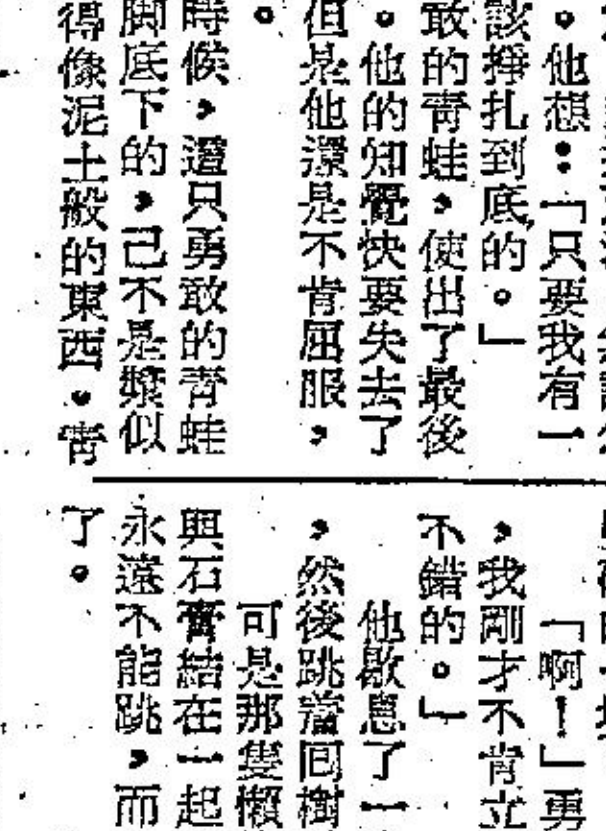 。他想：「只要我有一
該掙扎到底的。」
敢的青蛙，使出了最後
。他的知覺快要失去了
但是他還是不肯屈服，
。
時候，這只勇敢的青蛙
脚底下的，己不是漿似
得像泥土般的東西。青
「啊！」勇
，我剛才不肯立
不錯的。」
他歇息了一
，然後跳着回樹
可是那隻懶
與石膏結在一起
永遠不能跳，而
了。